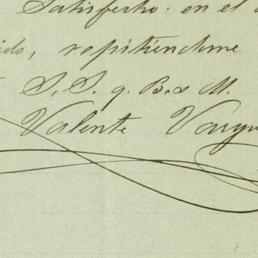 Satisfecho. en el
repitiéndome
S. S. q. B. s M.
Valente